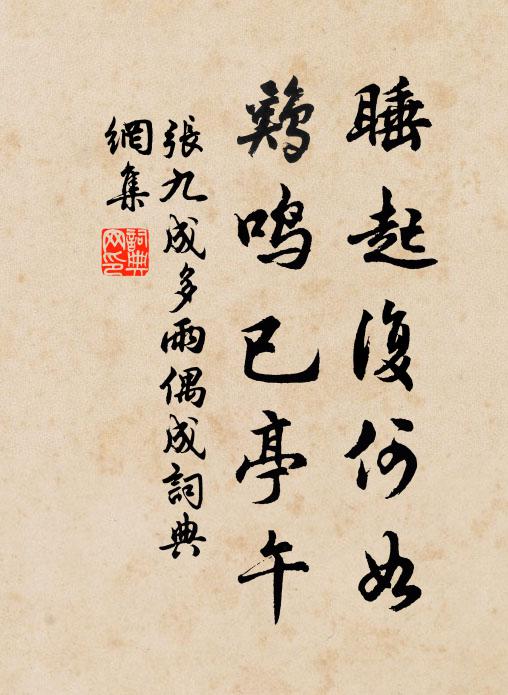 睡起復何如
鷄鳴已亭午
張九成多雨偶成詞典
網集
詞典網印